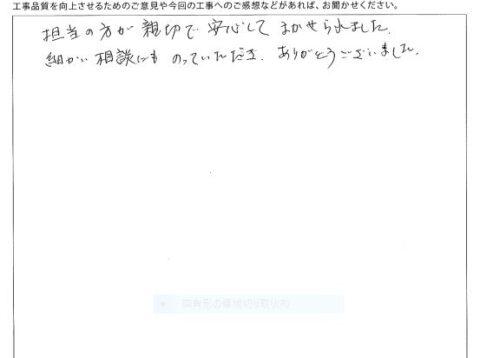 工事品質を向上させるためのご意見や今回の工事へのご感想などがあれば、お聞かせください。
担当の方が親切で安心してまかせられました。
細かい相談にものっていただき、ありがとうございました。
四角形の領域切り取り(R)